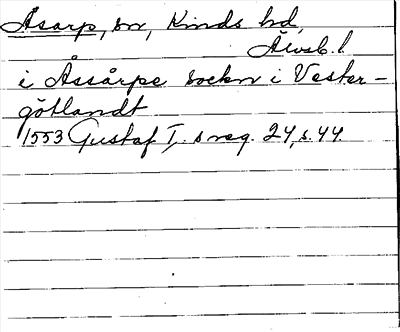 Åsarp, sn, Kinds hd,
Älvsb. l.
i Åssårpe sockn i Vester-
götlandt
1553 Gustaf I. s reg. 24, s. 44.